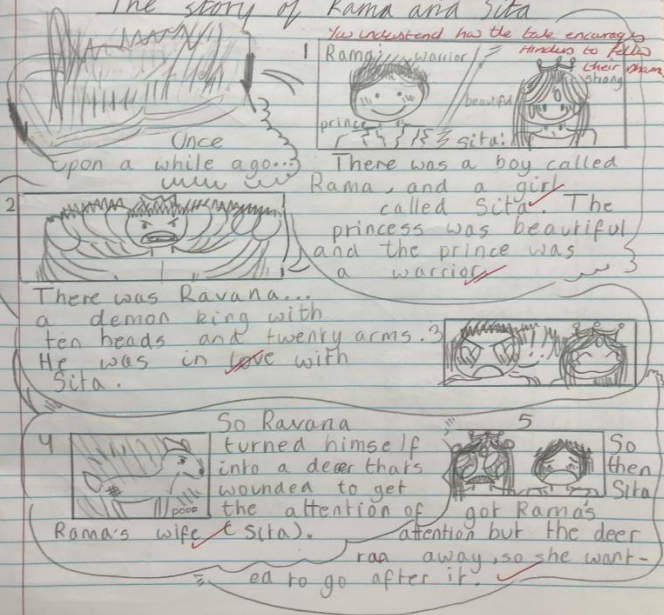 The story of Rama and Sita
You understand how the tale encourages
Hindus to follow
their dharma
1
Rama: warrior
strong
beautiful
prince
Sita:
Once
upon a while ago...
There was a boy called
Rama, and a girl
called Sita. The
princess was beautiful
and the prince was
a warrior
2
There was Ravana...
a demon king with
ten heads and twenty arms.
He was in love with
Sita.
3
!!
4
So Ravana
turned himself
into a deer thats
wounded to get
the attention of
Rama's wife (Sita).
5
So
then
Sita
got Rama's
attention but the deer
ran away, so she want-
ed to go after it.